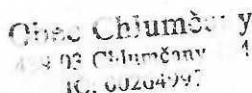 Obec Chlumčany
03 Chlumčany
00264997